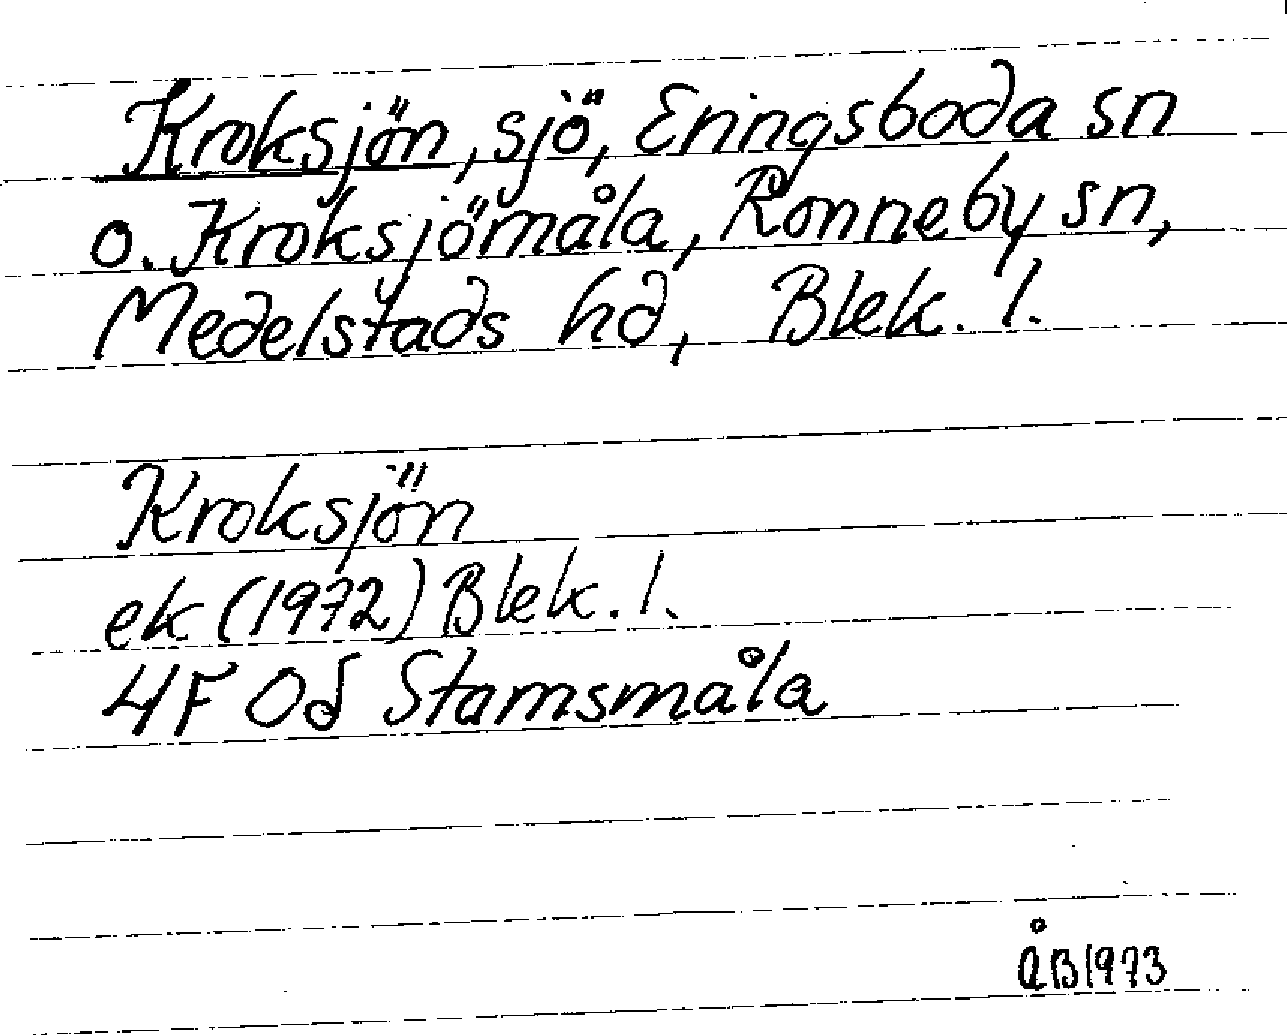 Kroksjön, sjö, Eringsboda sn
o. Kroksjömåla, Ronneby sn,
Medelstads hd, Blek. l.
Kroksjön
ek (1972) Blek. l.
4F 0d Stamsmåla
ÅB 1973